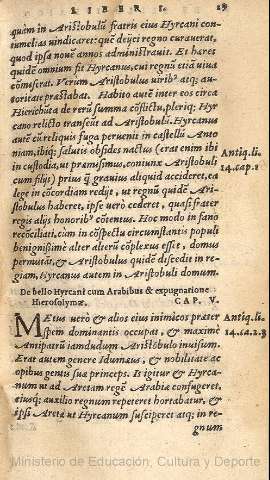 LIBER I. 19
quàm in Aristobulū fratris eius Hyrcani con-
tumelias vindicaret: quę deijci regno curauerat,
quod ipsa nouē annos administrauit. Et hæres
quidē omnium fit Hyrcanus, cui regnū etiā viua
cōmiserat. Verum Aristobulus uiribꝰ atq; au-
toritate præstabat. Habito autē inter eos circa
Hierichūta de rerū summa cōflictu, pleriq; Hyr
cano relicto transeūt ad Aristobulū. Hyrcanus
autē cū reliquis fuga peruenit in castellū Anto
niam, ibiq; salutis obsides nactus (erat enim ibi
in custodia, ut præmisimus, coniunx Aristobuli
cum filijs) prius q̃ grauius aliquid accideret, ea
lege in cōcordiam redijt, ut regnū quidē Ari-
stobulus haberet, ipse verò cederet, quasi frater
regis alijs honoribꝰ cōtentus. Hoc modo in fano
recōciliati, cùm in cōspectu circumstantis populi
benignißimè alter alterū cōplexus esset, domus
permutāt, & Aristobulus quidē discedit in re-
giam, Hyrcanus autem in Aristobuli domum.
Antiq. li.
14. cap. 1
De bello Hyrcani cum Arabibus & expugnatione
Hierosolymæ. CAP. V.
METus uerò & alios eius inimicos præter
spem dominantis occupat, & maximè
Antipatrū iamdudum Aristobulo inuisum.
Erat autem genere Idumæus, & nobilitate ac
opibus gentis sua princeps. Is igitur & Hyrca-
num ut ad Aretam regē Arabiæ confugeret,
eiusq; auxilio regnum repeteret hortabatur, &
ipsi Aretæ ut Hyrcanum susciperet atq; in re-
gnum
Antiq. li.
14. ca. 2. 3
Ministerio de Educación, Cultura y Deporte